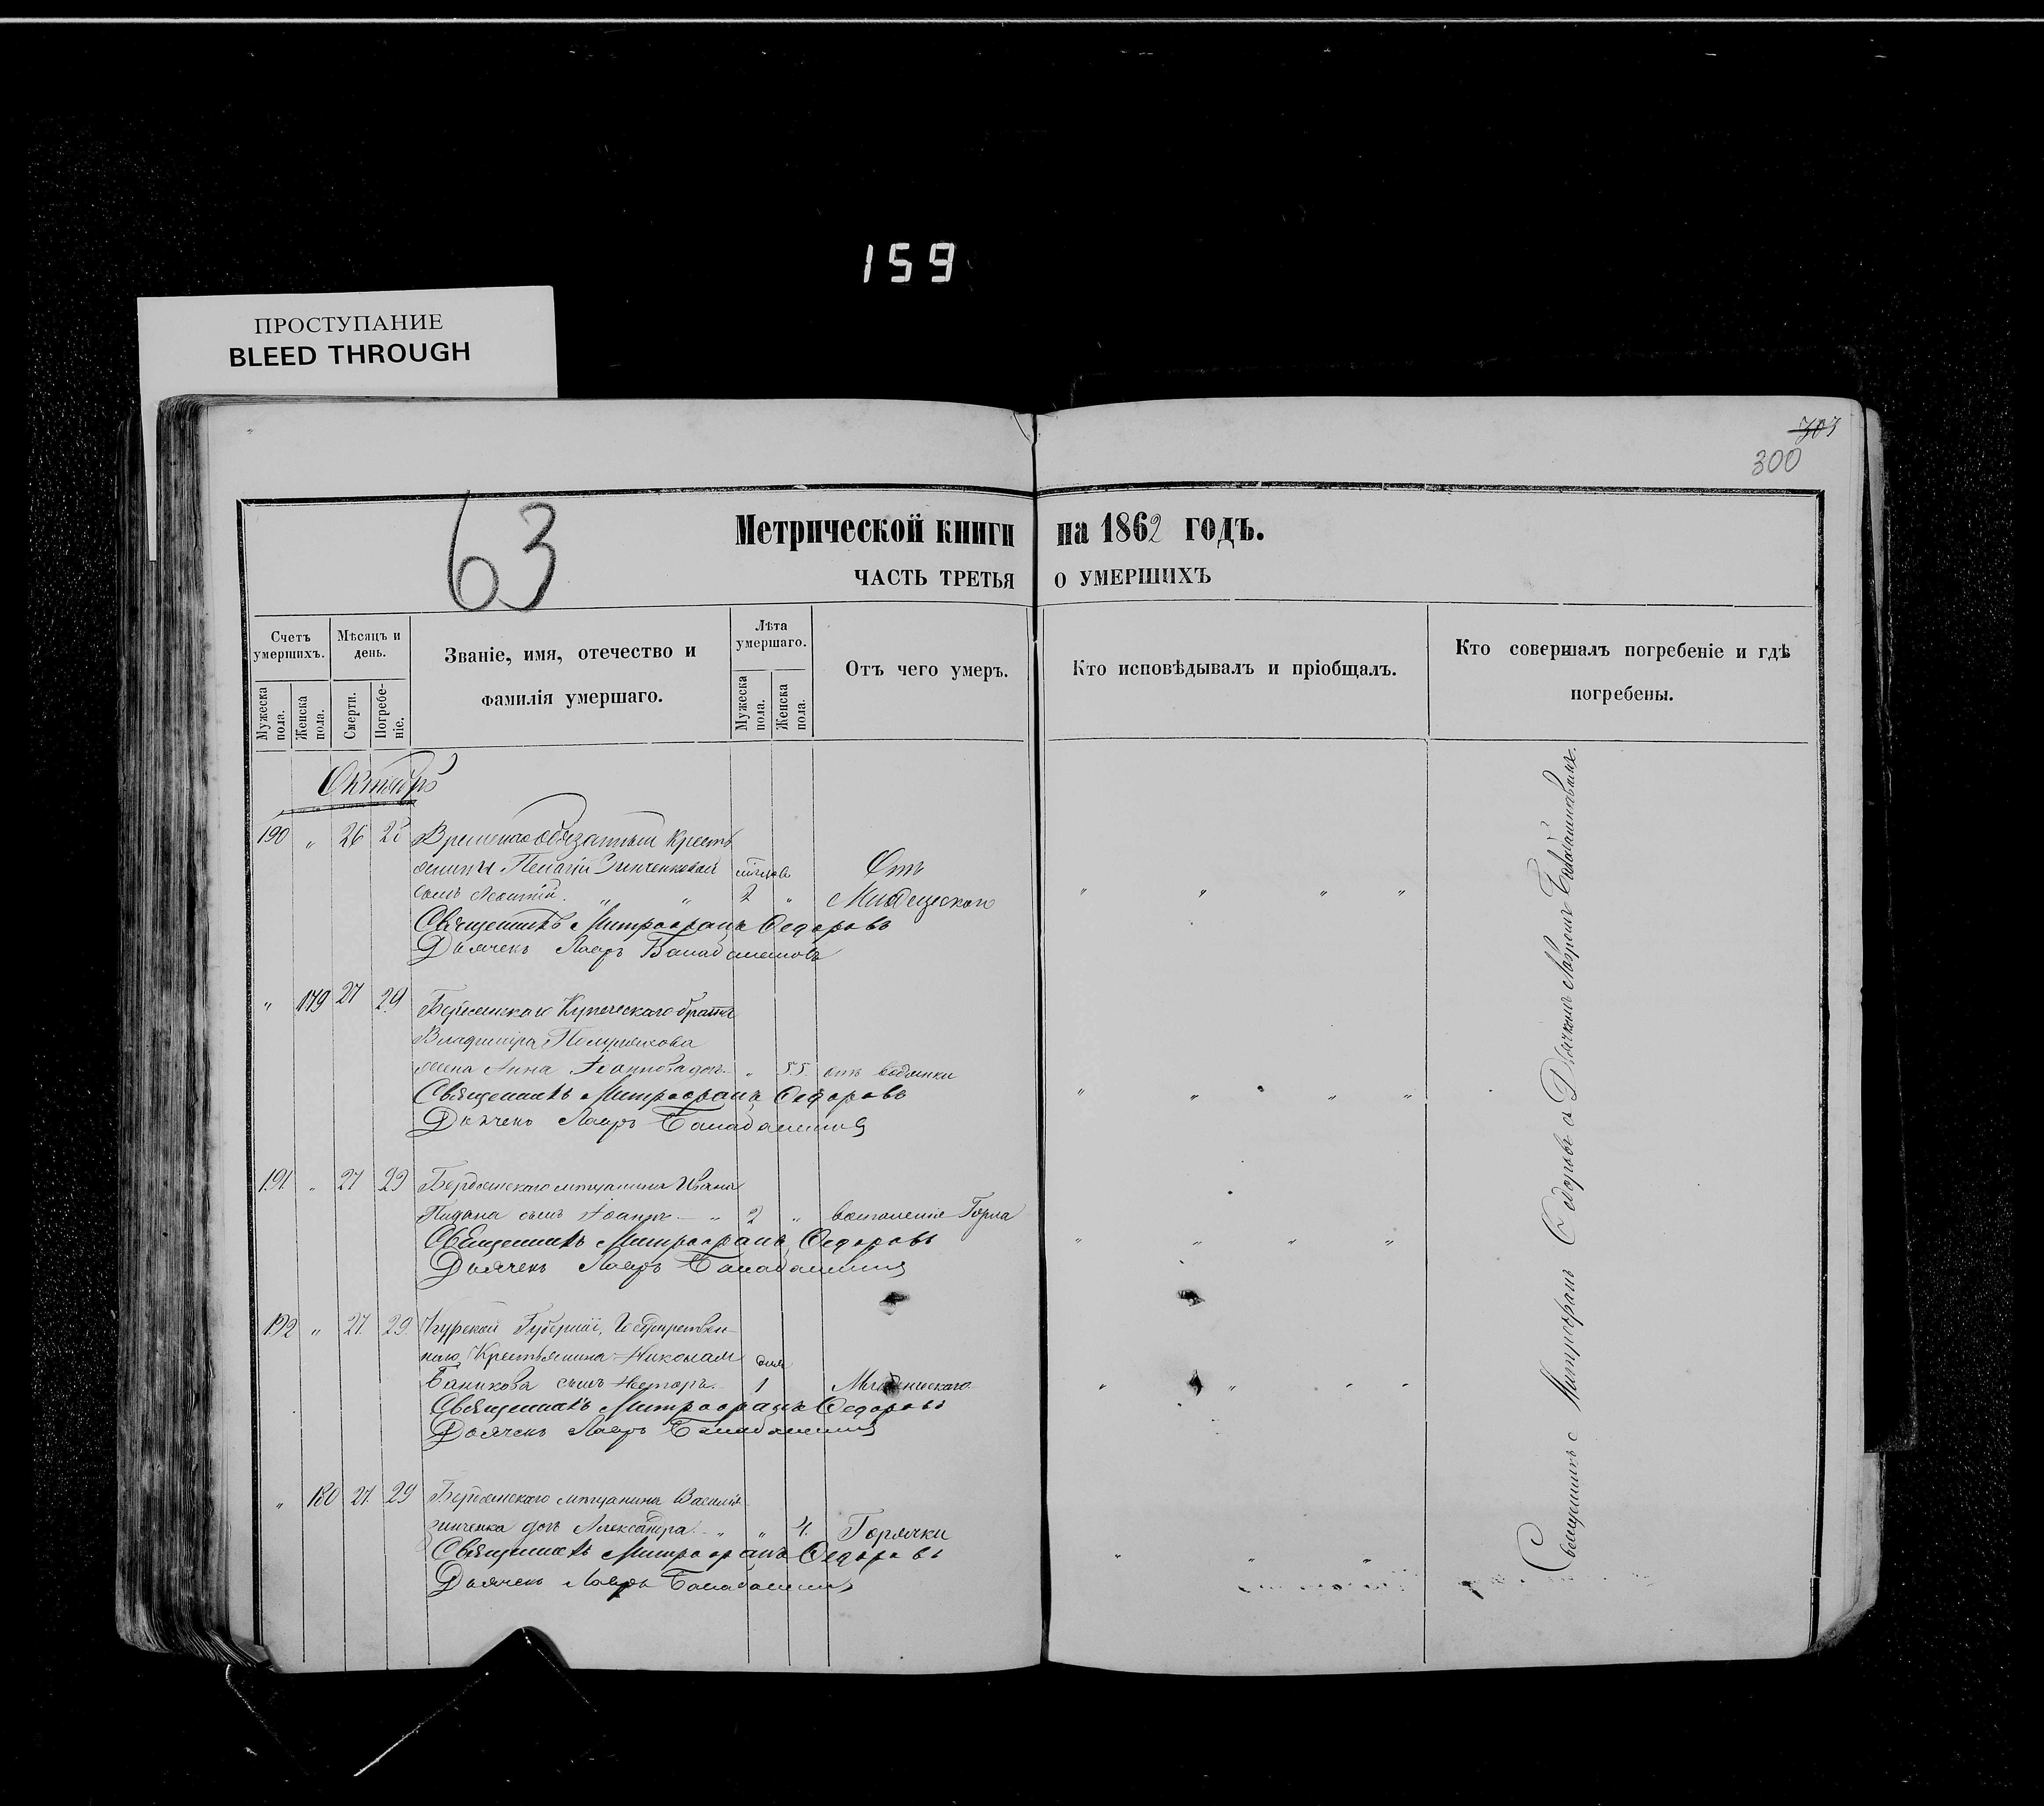 159
ПРОСТУПАНИЕ
BLEED THROUGH
303
300
63
Метрической книги на 1862 годъ.
ЧАСТЬ ТРЕТЬЯ О УМЕРШИХЪ
Счетъ умершихъ.
Мужеска пола.
Женска пола.
Мѣсяцъ и день.
Смерти.
Погребеніе.
Званіе, имя, отечество и фамилія умершаго.
Лѣта умершаго.
Мужеска пола.
Женска пола.
Отъ чего умеръ.
Кто исповѣдывалъ и пріобщалъ.
Кто совершалъ погребеніе и гдѣ погребены.
Октябрь
190 " 26 28 Временнообязанной крестьянки Пелагіи Зинченковой
сынъ Леонтій. " " 2 "
Отъ
Священникъ Митрофанъ Федоровъ
Дьячекъ Лавръ
" 179 27 29 Бердянскаго Купеческаго брата
Владиміра
жена Анна Іоаннова " 55 отъ водянки
Священникъ Митрофанъ Федоровъ
Дьячекъ Лавръ
191 " 27 29 Бердянскаго мѣщанина Ивана
сынъ Іоаннъ " 2 " воспаленіе Горла
Священникъ Митрофанъ Федоровъ
Дьячекъ Лавръ
192 " 27 29 Курской Губерніи, Государствен-
наго Крестьянина Николая дня
сынъ Несторъ. 1 Младенческаго
Священникъ Митрофанъ Федоровъ
Дьячекъ Лавръ
" 180 27 29 Бердянскаго мѣщанина Василія
Зинченка дочь Александра " " 4. Горячки
Священникъ Митрофанъ Федоровъ
Дьячекъ Лавръ
Священникъ Митрофанъ Федоровъ съ Дьячкомъ